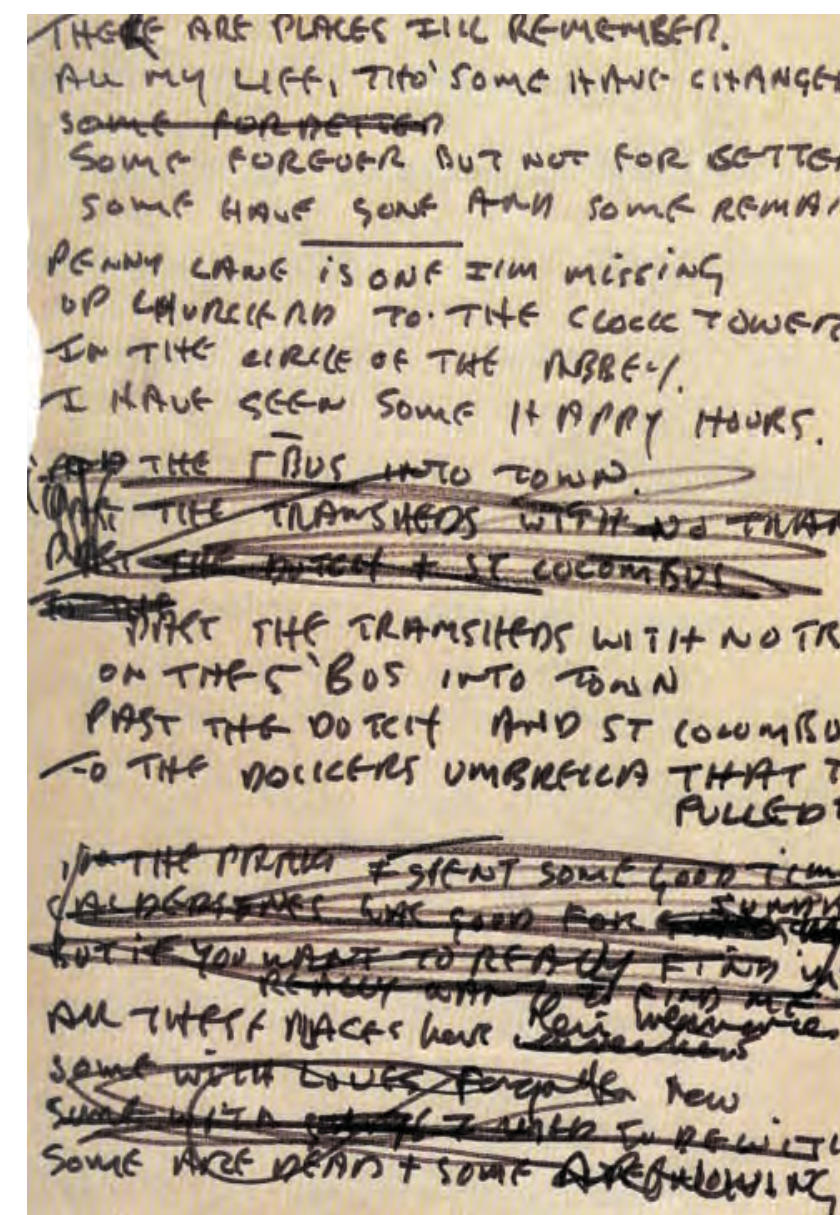 THERE ARE PLACES I'LL REMEMBER.
ALL MY LIFE, THO' SOME HAVE CHANGE
SOME FOR BETTER
SOME FOREVER BUT NOT FOR BETTE
SOME HAVE GONE AND SOME REMAI
PENNY LANE IS ONE I'M MISSING
UP CHURCH RD TO THE CLOCK TOWE
IN THE CIRCLE OF THE ABBEY.
I HAVE SEEN SOME HAPPY HOURS.
THE 5 BUS INTO TOWN.
THE TRAMSHEDS WITH NO TRA
PAST THE DUTCH + ST COLOMBUS
TO THE
PAST THE TRAMSHEDS WITH NO TR
ON THE 5 BUS INTO TOWN
PAST THE DUTCH AND ST COLUMBU
TO THE DOCKERS UMBRELLA THAT T
PULLED
IN THE PARK I SPENT SOME GOOD TIM
CALDERSTONES WAS GOOD FOR
BUT IF YOU WANT TO REALLY FIND
REALLY WANT TO FIND ME
ALL THESE PLACES have their memories
SOME WITH LOVES forgotten new
SOME WITH I USED TO BE WITH
SOME ARE DEAD + SOME ARE LIVING